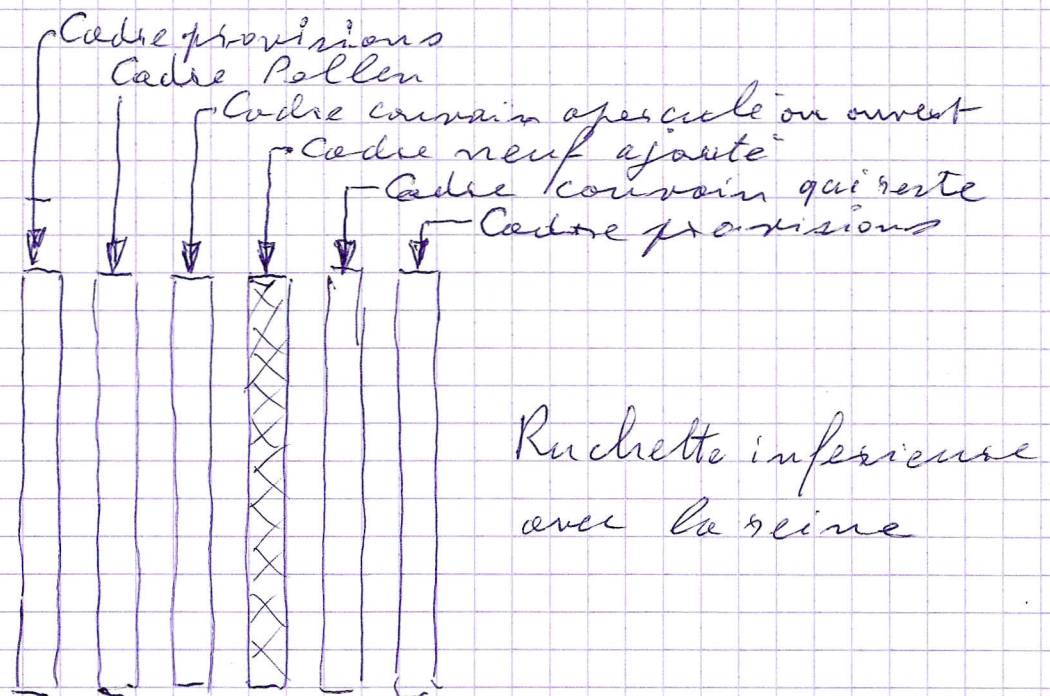 Cadre provisions
Cadre Pollen
Cadre couvain operculé ou ouvert
Cadre neuf ajouté
Cadre couvain qui reste
Cadre provisions
Ruchette inferieure
avec la reine